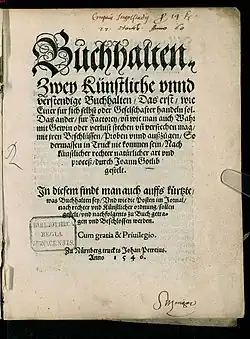 Buchhalten,
Zwey Künstliche vnnd
verstendige Buchhalten / Das erst / wie
Einer für sich selbst oder Gesellschaffter handeln sol.
Das ander / für Factoren / vñ wie man auch Wahr
mit Gewin oder verlust stechen vñ versechen mag /
mit jren Beschlüssen / Proben vnnd auszügen / So
dermassen in Truck nie kommen sein / Nach
künstlicher rechter natürlicher art vnd
proceß / durch Joann Gotlib
gestelt.
In diesem findt man auch auffs kürtze,
was Buchhalten sey / Vnd wie die Posten im Jornal /
nach rechter vnd Künstlicher ordnung / sollen
gestelt / vnd nachfolgents zu Buch getra-
gen vnd Beschlossen werden.
BIBLIOTHECA
REGIA
MONACENSIS.
Cum gratia & Priuilegio.
Zu Nürnberg truckts Johan Petreius.
Anno 1 5 4 6.